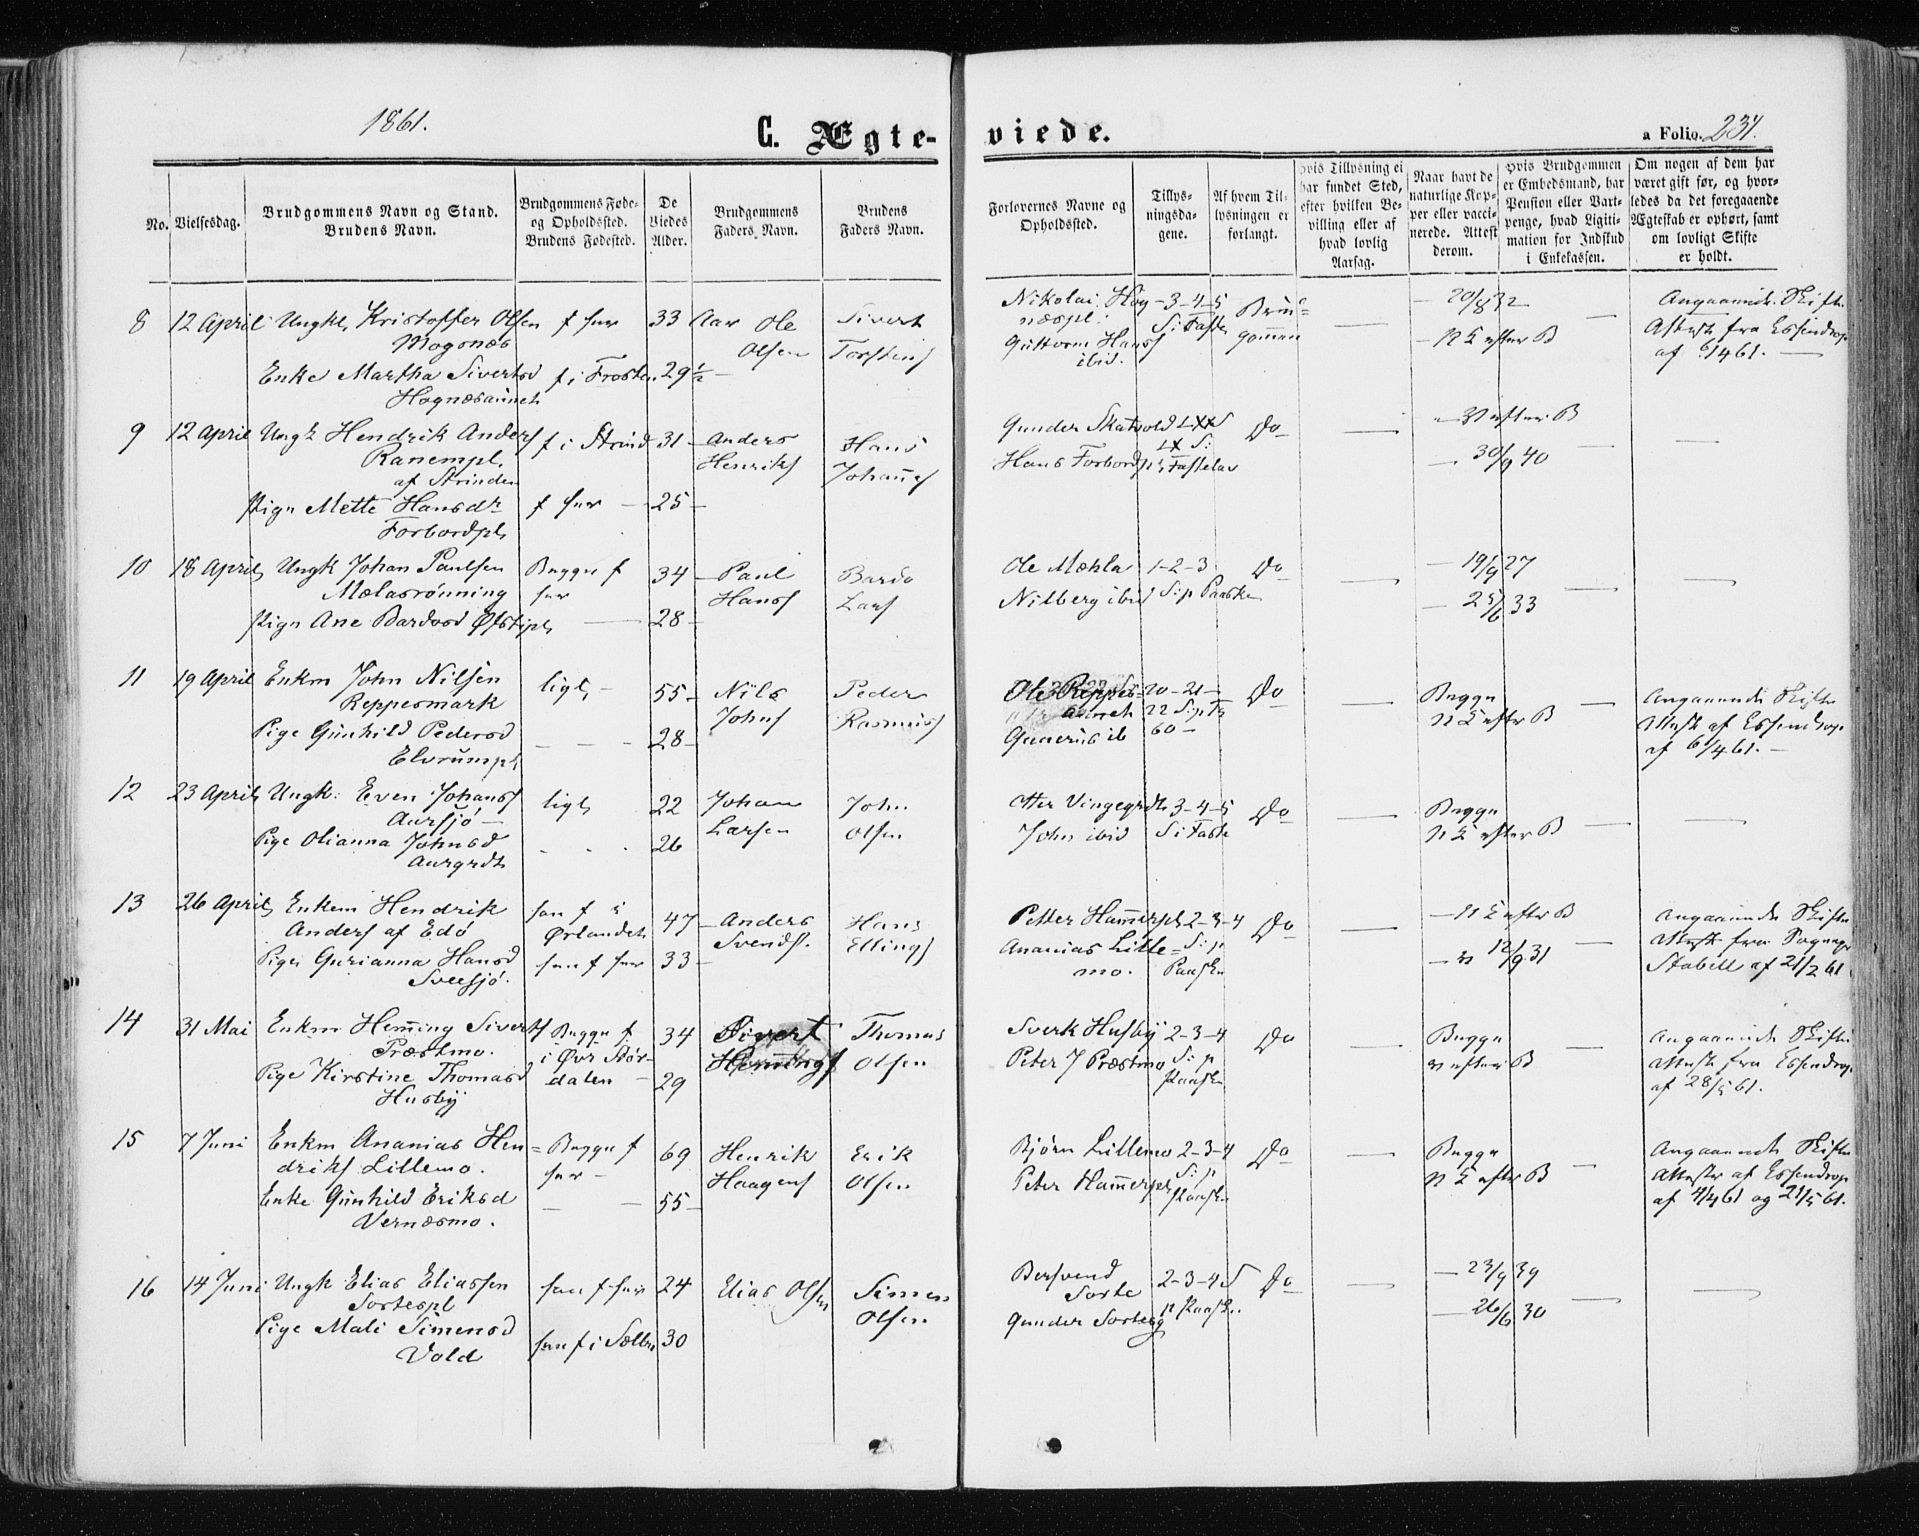 1861.
C. Ægte-
viede.
a Folio. 234.
No.
Vielsesdag.
Brudgommens Navn og Stand.
Brudens Navn.
Brudgommens Føde-
og Opholdssted.
Brudens Fødested.
De
Viedes
Alder.
Brudgommens
Faders Navn.
Brudens
Faders Navn.
Forlovernes Navne og
Opholdssted.
Tillys-
ningsda-
gene.
Af hvem Til-
lysningen er
forlangt.
Hvis Tillysning ei
har fundet Sted,
efter hvilken Be-
villing eller af
hvad lovlig
Aarsag.
Naar havt de
naturlige Kop-
per eller vacci-
nerede. Attest
derom.
Hvis Brudgommen
er Embedsmand, har
Pension eller Vart-
penge, hvad Legiti-
mation for Indskud
i Enkekassen.
Om nogen af dem har
været gift før, og hvor-
ledes da det foregaaende
Ægteskab er ophørt, samt
om lovligt Skifte
er holdt.
8 12 April Ungk. Kristoffer Olsen f her 33 Aar Ole Sivert
Mogsnæs Olsen Torstens
Enke Martha Sivertsd f i Frosten 29½ —
Hognæsaunet
Nikolai Hog- 3-4-5 Brud- 20/8 32 Angaaende Skifte
næspl. S. i Faste gommen
Guttorm Hans ibid. — n E efter B Attest fra Essendrop
af 6/4 61. —
9 12 April Ungk Hendrik Anders f i Strind 31 — Anders Hans
Ranempl. Henriks Johans
af Strinden
Pige Mette Hansdr f her — 25 —
Forbordpl
Gunder Skatvold Do — efter B
Hans Forbordspl Fastelav — 30/9 40
10 18 April Ungk Johan Paulsen Begge f 34 — Paul Bardo
Mælasrønning her Hans Lars
Pige Ane Bardosd Øfstipl — 28 —
Ole Mæhla 1-2-3 Do — 19/9 27
Nilberg ibid S. p Paaske — 25/6 33
11 19 April Enkm John Nilsen ligl — 55 — Nils Peder
Reppesmark Johns Rasmus
Pige Gunhild Pedersd — — — 28 —
Elvrumpl
Ole Reppes- 20-21- Do Begge Angaaende Skifte
aunet 22 S. p Tr n E efter B Attest af Essendrop
Gunerius ib 60 — af 6/4 61. —
12 23 April Ungk: Even Johans ligl 22 Johan John
Aursjø — Larsen Olsen
Pige Olianna Johnsd . . . 26
Aurgrdt
Otter Vingegrdt 3-4-5 Do Begge
John ibid S. i Faste n E efter B
13 26 April Enkem Hendrik han f i 47 — Anders Hans
Anders af Edø Ørlandet Svends. Ellings
Pige Gurianna Hansd hun f her 33 —
Sveesjø.
Petter Hammerpl 2-3-4 Do — n E efter B Angaaende Skifte
Ananias Lille- S. p — n 12/9 31 Attest fra Sognepr
mo. Paaske Stabell af 21/2 61
14 31 Mai Enkm Hemming Siverts Begge f 34 Sivert Thomas
Præstmo. i Øvr Stør- Hemmings Olsen
Pige Kirstine Thomasd dalen — 29
Husby
Sverk Husby 2-3-4 Do Begge Angaaende Skifte
Peter J Præstmo S. p n efter B Attest fra Essendrop
Paaske af 28/5 61.
15 7 Juni Enkm Ananias Hen- Begge f 69 Henrik Erik
driks Lillemo. her — Haagens Olsen
Enke Gunhild Eriksd — — 55 —
Vernæsmo.
Bjørn Lillemo 2-3-4 Do Begge Angaaende Skifte
Peter Hammerpl S. p n E efter B Attester af Essendrop
Paaske af 4/4 61 og 21/5 61.
16 14 Juni Ungk Elias Eliassen han f her 24 Elias Olsen Simen
Sortespl Olsen
Pige Mali Simensd hun f i Sælbu 30
Vold
Bersvend 2-3-4 S Do — 23/9 39
Sorte p Paaske.
Gunder Sorteeg — 26/6 30